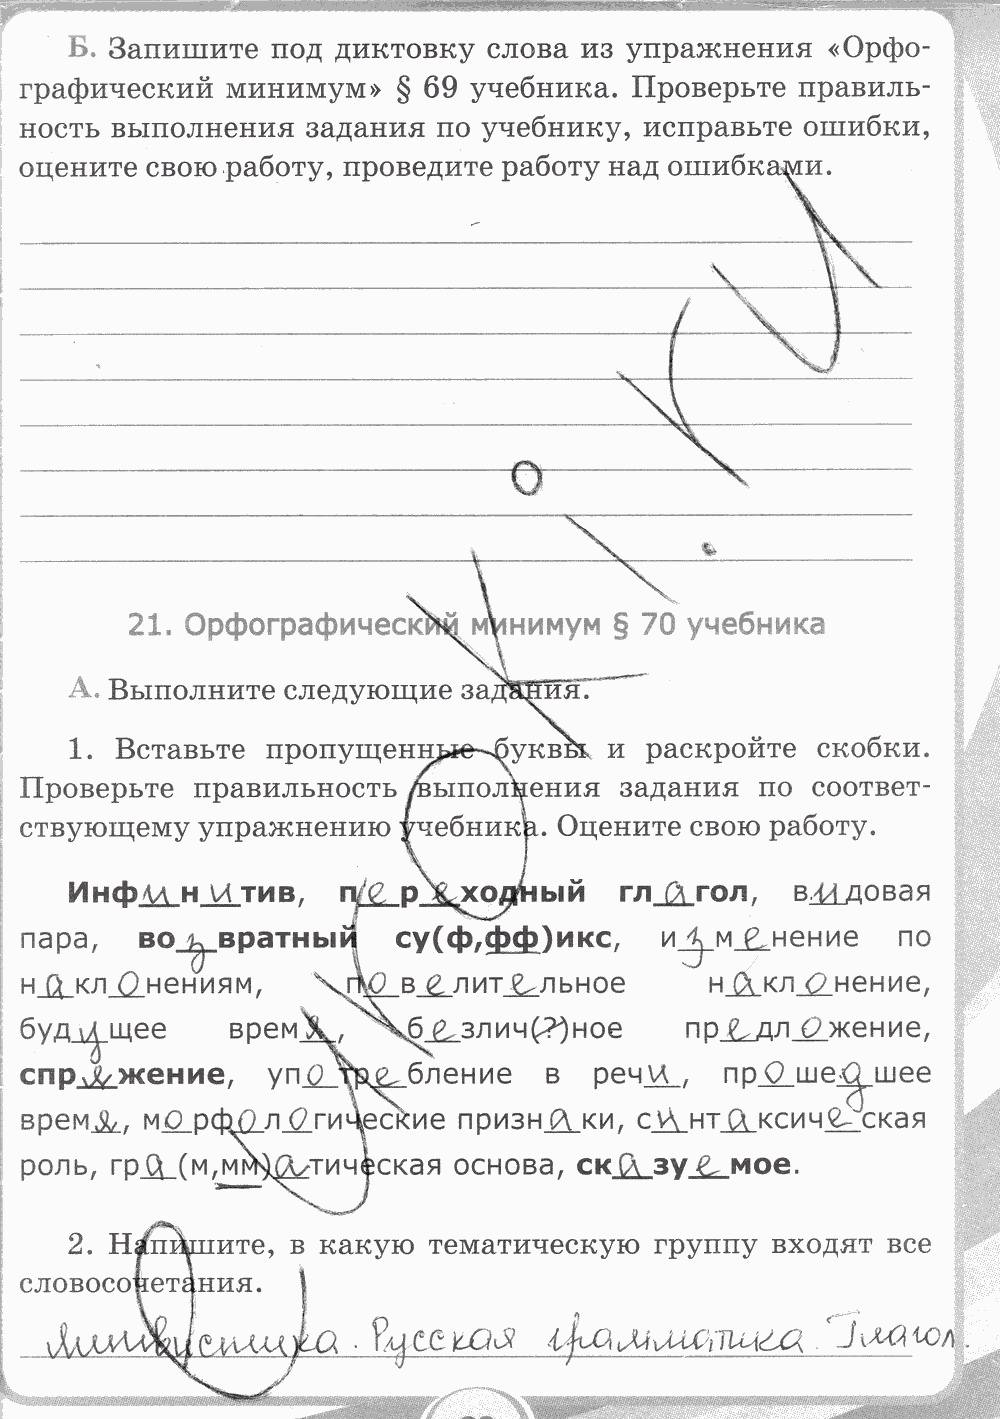 Б. Запишите под диктовку слова из упражнения «Орфо-
графический минимум» § 69 учебника. Проверьте правиль-
ность выполнения задания по учебнику, исправьте ошибки,
оцените свою работу, проведите работу над ошибками.
21. Орфографический минимум § 70 учебника
А. Выполните следующие задания.
1. Вставьте пропущенные буквы и раскройте скобки.
Проверьте правильность выполнения задания по соответ-
ствующему упражнению учебника. Оцените свою работу.
Инфинитив, переходный глагол, видовая
пара, возвратный су(ф,фф)икс, изменение по
наклонениям, повелительное наклонение,
будущее время, безлич(?)ное предложение,
спряжение, употребление в речи, прошедшее
время, морфологические признаки, синтаксическая
роль, гра(м,мм)атическая основа, сказуемое.
2. Напишите, в какую тематическую группу входят все
словосочетания.
Лингвистика. Русская грамматика. Глагол.
euroki.ru